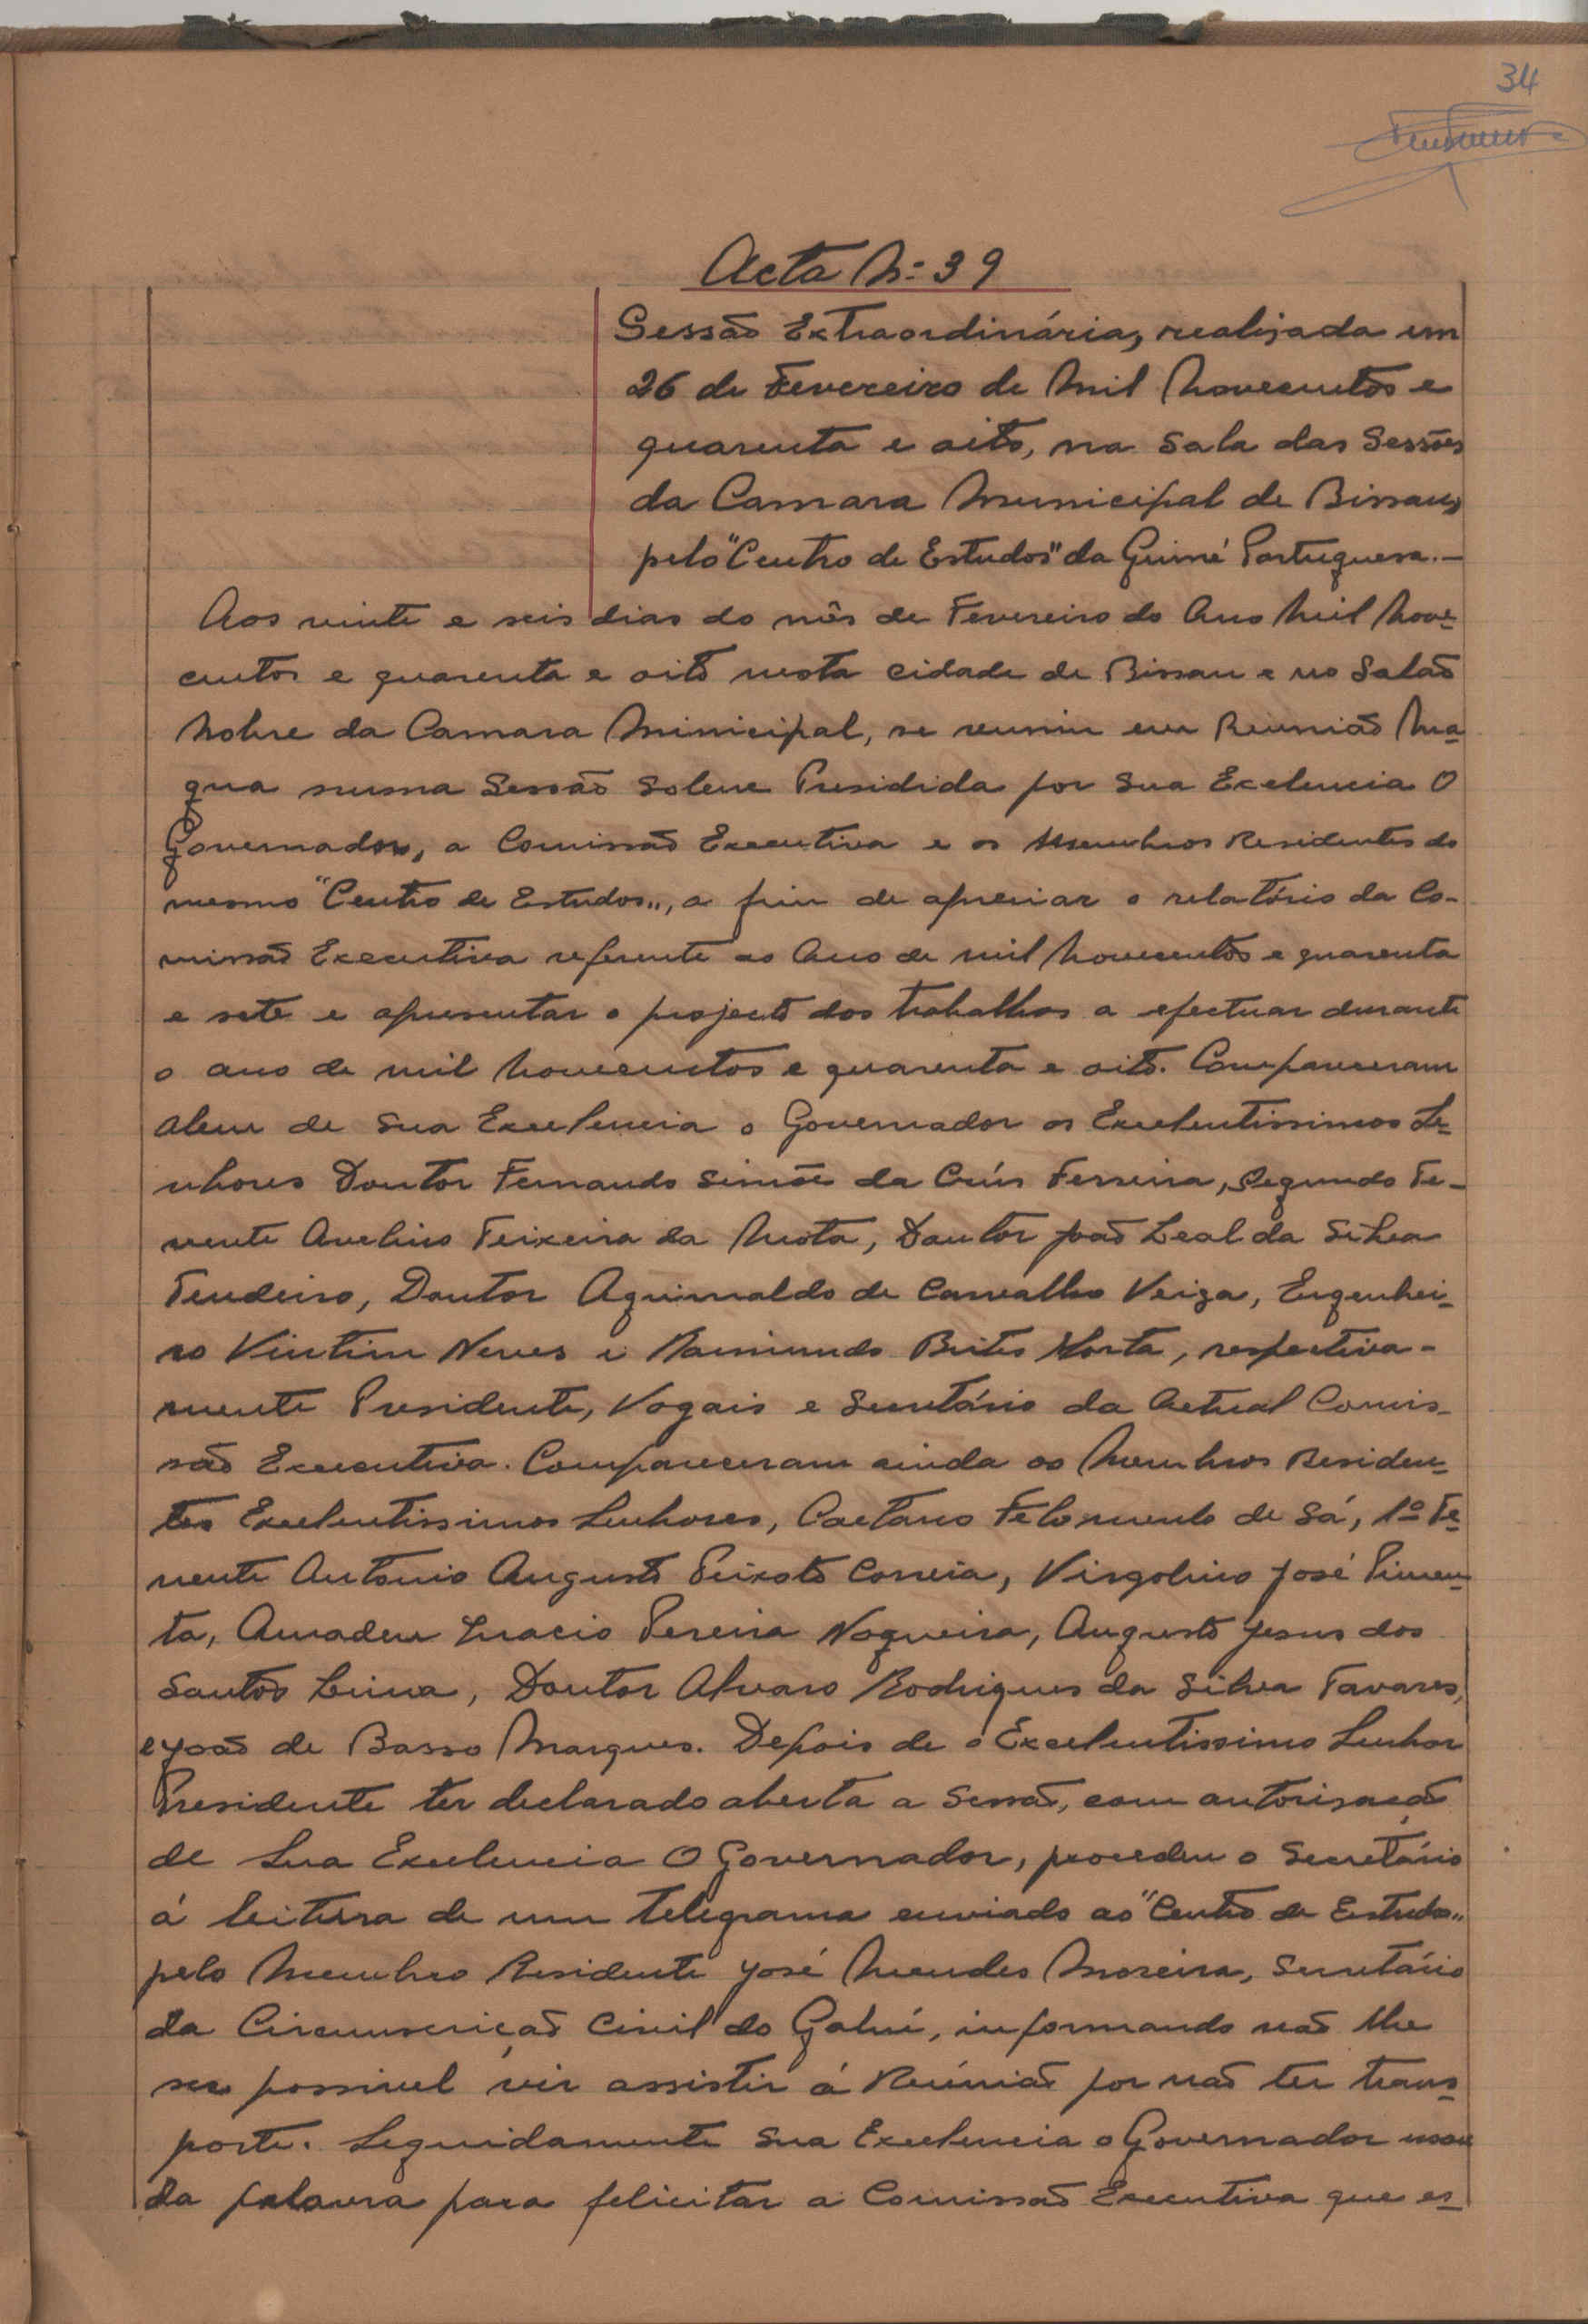 34
Acta Nº 39
Sessão Extraordinária, realizada em
26 de Fevereiro de Mil Novecentos e
quarenta e oito, na Sala das Sessões
da Camara Municipal de Bissau,
pelo "Centro de Estudos" da Guiné Portuguesa.—
Aos vinte e seis dias do mês de Fevereiro do Ano Mil Nove-
centos e quarenta e oito nesta cidade de Bissau e no Salão
Nobre da Camara Municipal, se reuniu em Reunião Ma-
gna numa Sessão Solene Presidida por Sua Excelencia O
Governador, a Comissão Executiva e os Membros Residentes do
mesmo "Centro de Estudos", a fim de apreciar o relatório da Co-
missão Executiva referente ao Ano de mil Novecentos e quarenta
e sete e apresentar o projecto dos trabalhos a efectuar durante
o ano de mil Novecentos e quarenta e oito. Compareceram
alem de Sua Excelencia o Governador os Excelentissimos Se-
nhores Doutor Fernando Simões da Crús Ferreira, Segundo Te-
nente Avelino Teixeira da Mota, Doutor João Leal da Silva
Tendeiro, Doutor Aguinaldo de Carvalho Veiga, Engenhei-
ro Vintim Neves e Raimundo Brites Horta, respectiva-
mente Presidente, Vogais e Secretário da Actual Comis-
são Executiva. Compareceram ainda os Membros Residen-
tes Excelentissimos Senhores, Caetano Felomeno de Sá, 1º Te-
nente Antonio Augusto Peixoto Correia, Virgolino José Pimen-
ta, Amadeu Inacio Pereira Nogueira, Augusto Jesus dos
Santos Lima, Doutor Alvaro Rodrigues da Silva Tavares,
e João de Basso Marques. Depois de o Excelentissimo Senhor
Presidente ter declarado aberta a Sessão, com autorisação
de Sua Excelencia O Governador, procedeu o Secretário
á leitura de um telegrama enviado ao "Centro de Estudos"
pelo Membro Residente José Mendes Moreira, Secretário
da Circunscrição Civil do Gabú, informando não lhe
ser possivel vir assistir á Reúnião por não ter trans-
porte. Seguidamente Sua Excelencia o Governador usou
da palavra para felicitar a Comissão Executiva que es-